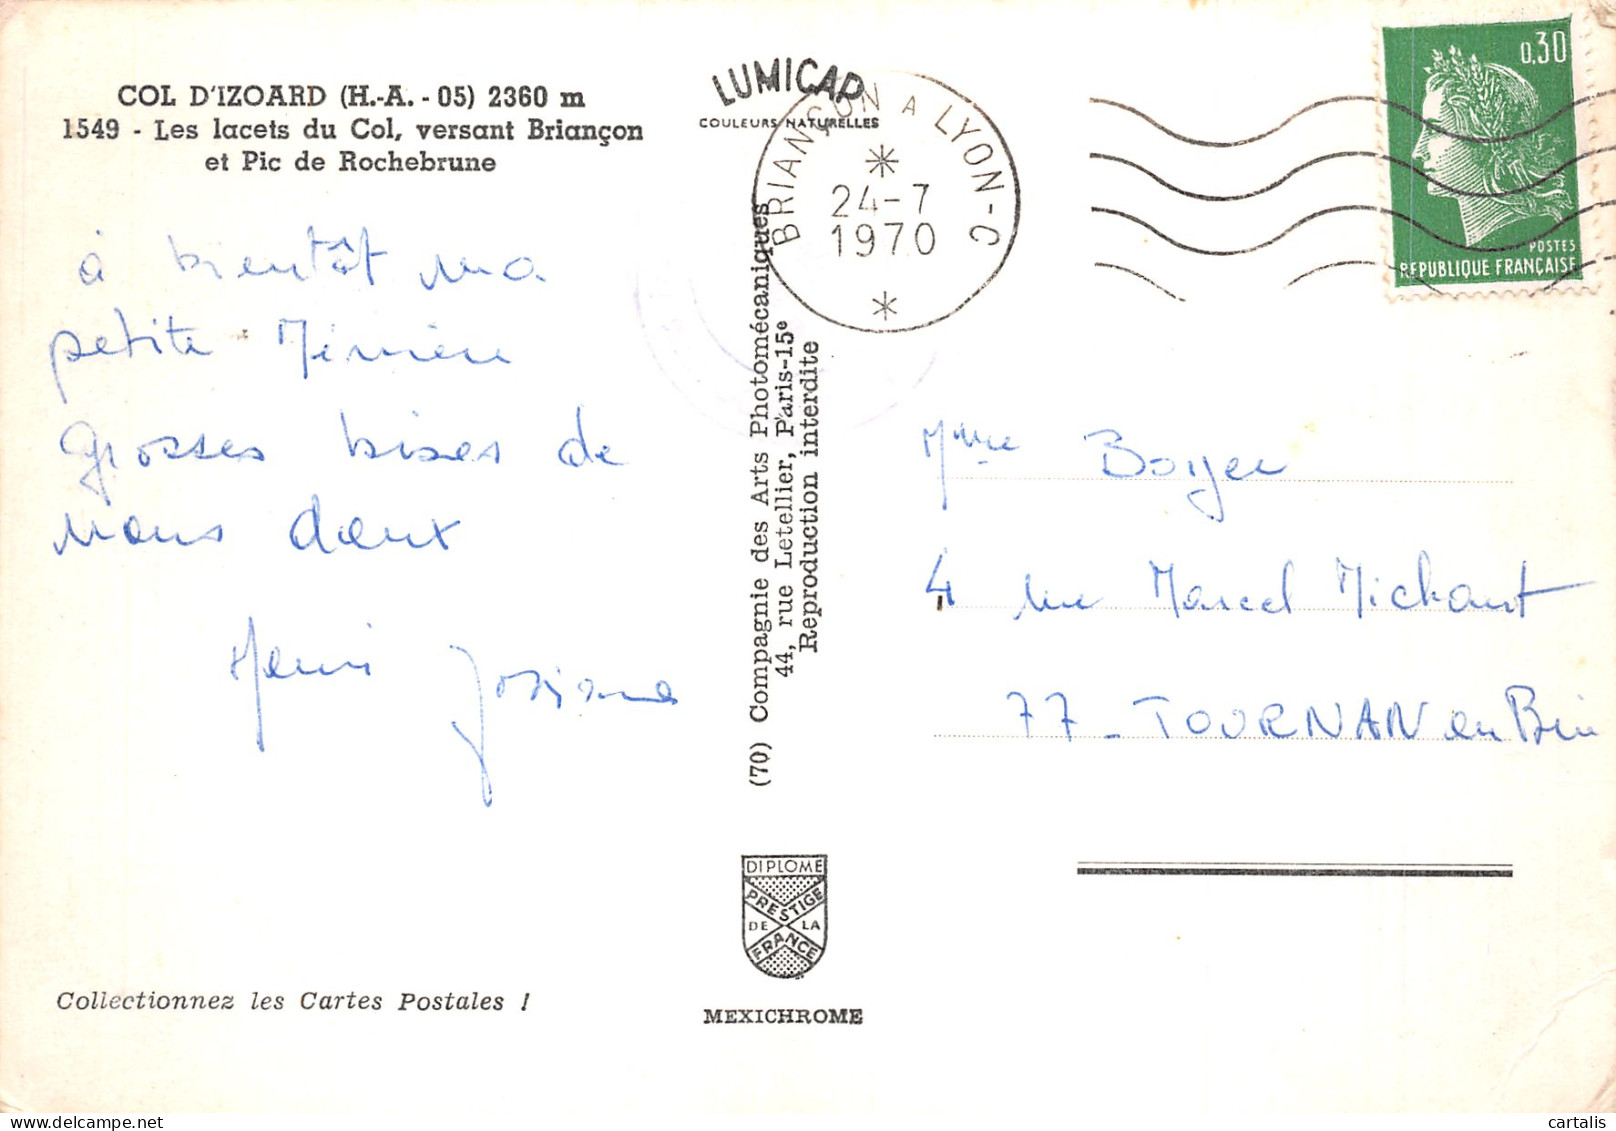 COL D'IZOARD (H.-A. - 05) 2360 m
1549 - Les lacets du Col, versant Briançon
et Pic de Rochebrune
à bientôt ma
petite
grosses bises de
nous deux
Henri Josiane
Collectionnez les Cartes Postales !
LUMICAP
COULEURS NATURELLES
BRIANÇON A LYON-C
24-7
1970
(70) Compagnie des Arts Photomécaniques
44, rue Letellier, Paris-15e
Reproduction interdite
DIPLOME
PRESTIGE
DE LA
FRANCE
MEXICHROME
0,30
POSTES
REPUBLIQUE FRANÇAISE
Mme Boyer
4 rue Marcel Michaut
77 - TOURNAN en Brie
cartalis